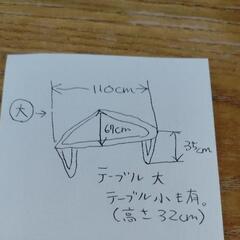 110cm
大
69cm
35cm
テーブル 大
テーブル小も有。
(高さ32cm)